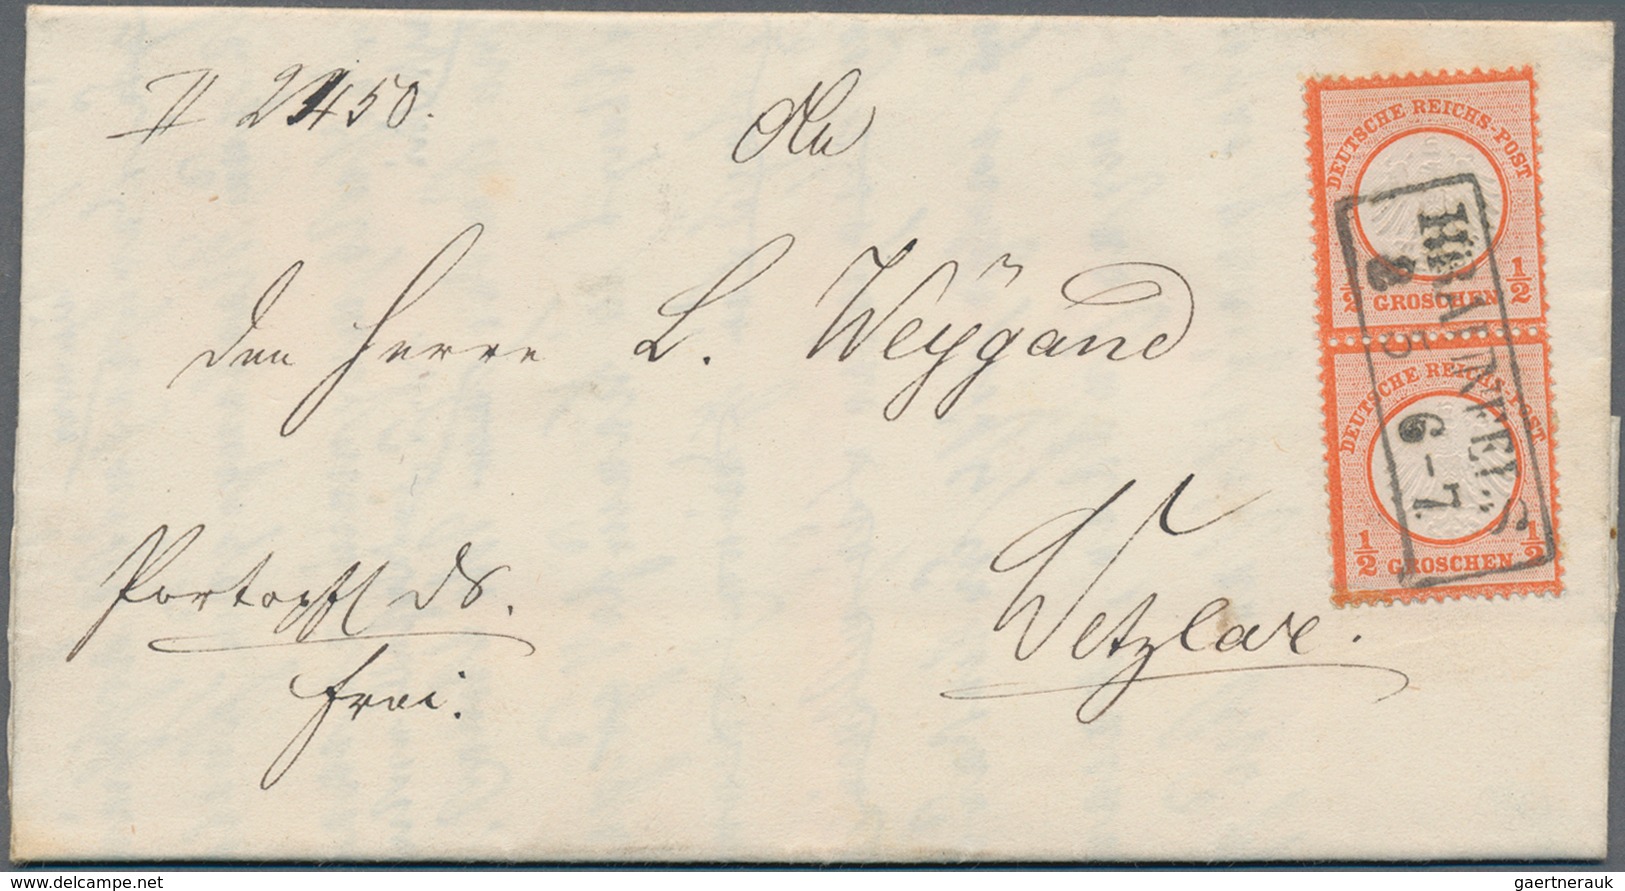 # 2450.
An
den Herrn L. Weygand
Wetzlar.
Portopfl DS.
frei.
DEUTSCHE REICHS-POST
1/2 GROSCHEN 1/2
DEUTSCHE REICHS-POST
1/2 GROSCHEN 1/2
BRAUNFELS
8 5 6-7
delcampe.net
gaertnerauk